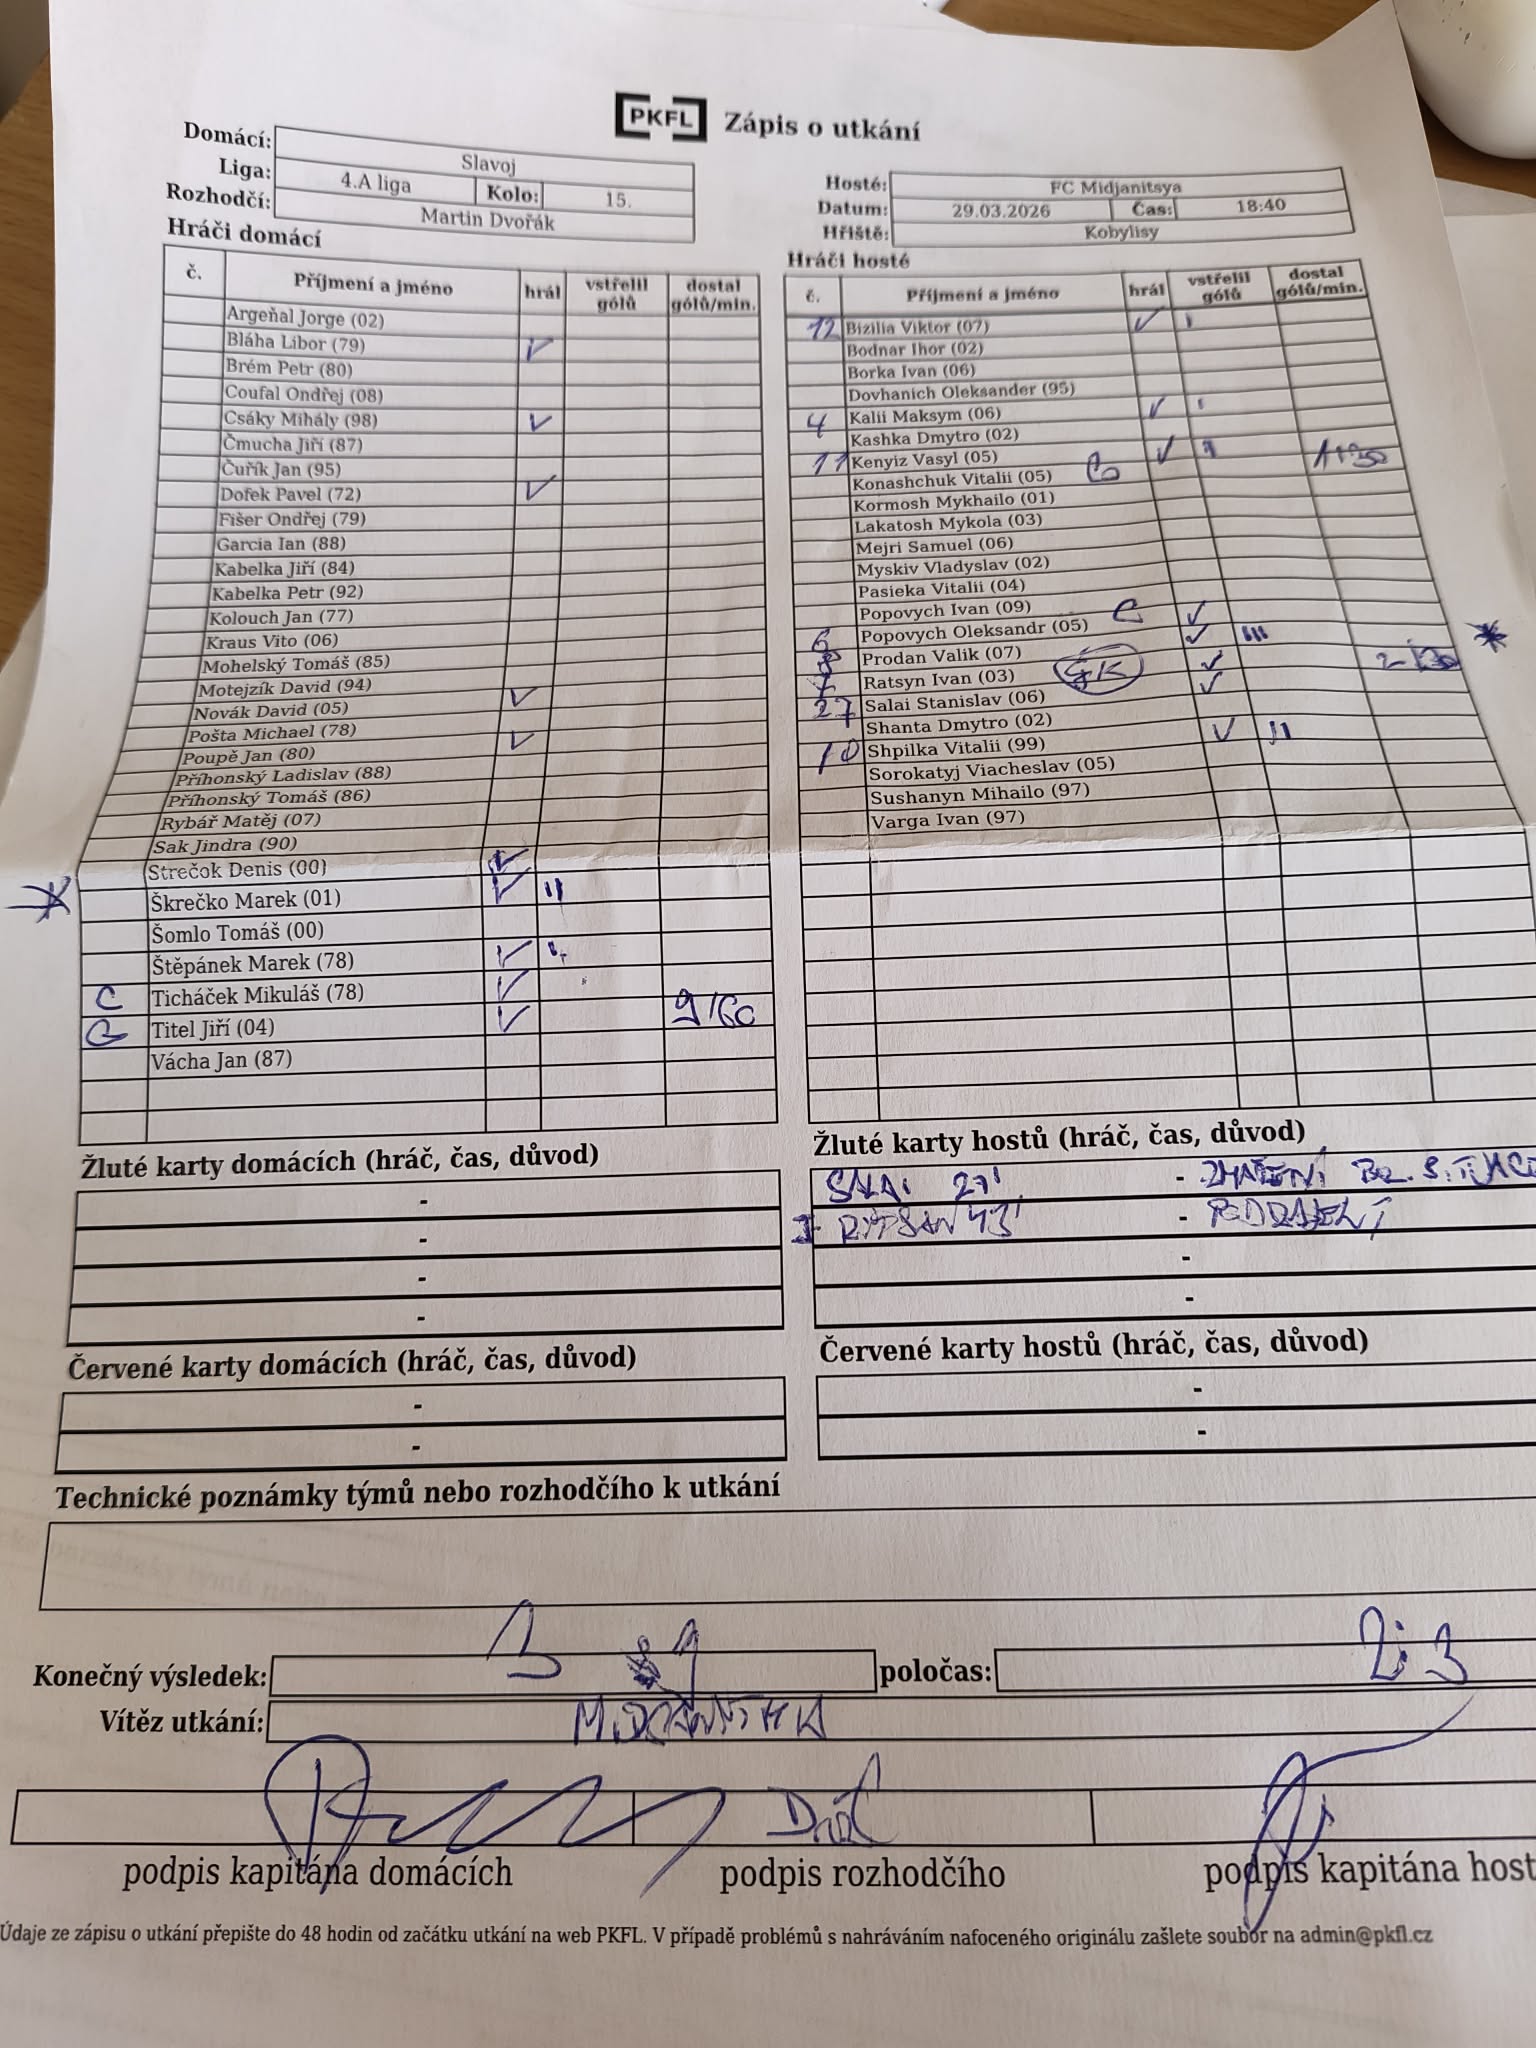 PKFL Zápis o utkání
Domácí: Slavoj
Liga: 4.A liga Kolo: 15.
Rozhodčí: Martin Dvořák
Hosté: FC Midjanitsya
Datum: 29.03.2026 Čas: 18:40
Hřiště: Kobylisy
Hráči domácí
č. Příjmení a jméno hrál vstřelil gólů dostal gólů/min.
Argeňal Jorge (02)
Bláha Libor (79) ✓
Brém Petr (80)
Coufal Ondřej (08)
Csáky Mihály (98) ✓
Čmucha Jiří (87)
Čuřík Jan (95)
Dofek Pavel (72) ✓
Fišer Ondřej (79)
Garcia Ian (88)
Kabelka Jiří (84)
Kabelka Petr (92)
Kolouch Jan (77)
Kraus Vito (06)
Mohelský Tomáš (85)
Motejzík David (94)
Novák David (05) ✓
Pošta Michael (78)
Poupě Jan (80) ✓
Příhonský Ladislav (88)
Příhonský Tomáš (86)
Rybář Matěj (07)
Sak Jindra (90)
Strečok Denis (00) ✓
Škrečko Marek (01) ✓ II
Šomlo Tomáš (00)
Štěpánek Marek (78) ✓
C Ticháček Mikuláš (78) ✓
Titel Jiří (04) ✓ 9/60
Vácha Jan (87)
Hráči hosté
č. Příjmení a jméno hrál vstřelil gólů dostal gólů/min.
12 Bizilia Viktor (07) ✓ I
Bodnar Ihor (02)
Borka Ivan (06)
Dovhanich Oleksander (95)
4 Kalii Maksym (06) ✓ I
Kashka Dmytro (02)
11 Kenyiz Vasyl (05) ✓ I
Konashchuk Vitalii (05)
Kormosh Mykhailo (01)
Lakatosh Mykola (03)
Mejri Samuel (06)
Myskiv Vladyslav (02)
Pasieka Vitalii (04)
Popovych Ivan (09)
6 Popovych Oleksandr (05) C ✓
8 Prodan Valik (07) ✓ III
7 Ratsyn Ivan (03) GK ✓
27 Salai Stanislav (06) ✓
Shanta Dmytro (02)
10 Shpilka Vitalii (99) ✓ II
Sorokatyj Viacheslav (05)
Sushanyn Mihailo (97)
Varga Ivan (97)
Žluté karty domácích (hráč, čas, důvod)
-
-
-
-
Žluté karty hostů (hráč, čas, důvod)
SALAI 27' -
43' - PODRAŽENÍ
-
-
Červené karty domácích (hráč, čas, důvod)
-
-
Červené karty hostů (hráč, čas, důvod)
-
-
Technické poznámky týmů nebo rozhodčího k utkání
Konečný výsledek: 3 9 poločas: 2:3
Vítěz utkání:
podpis kapitána domácích podpis rozhodčího podpis kapitána host
Údaje ze zápisu o utkání přepište do 48 hodin od začátku utkání na web PKFL. V případě problémů s nahráváním nafoceného originálu zašlete soubor na admin@pkfl.cz